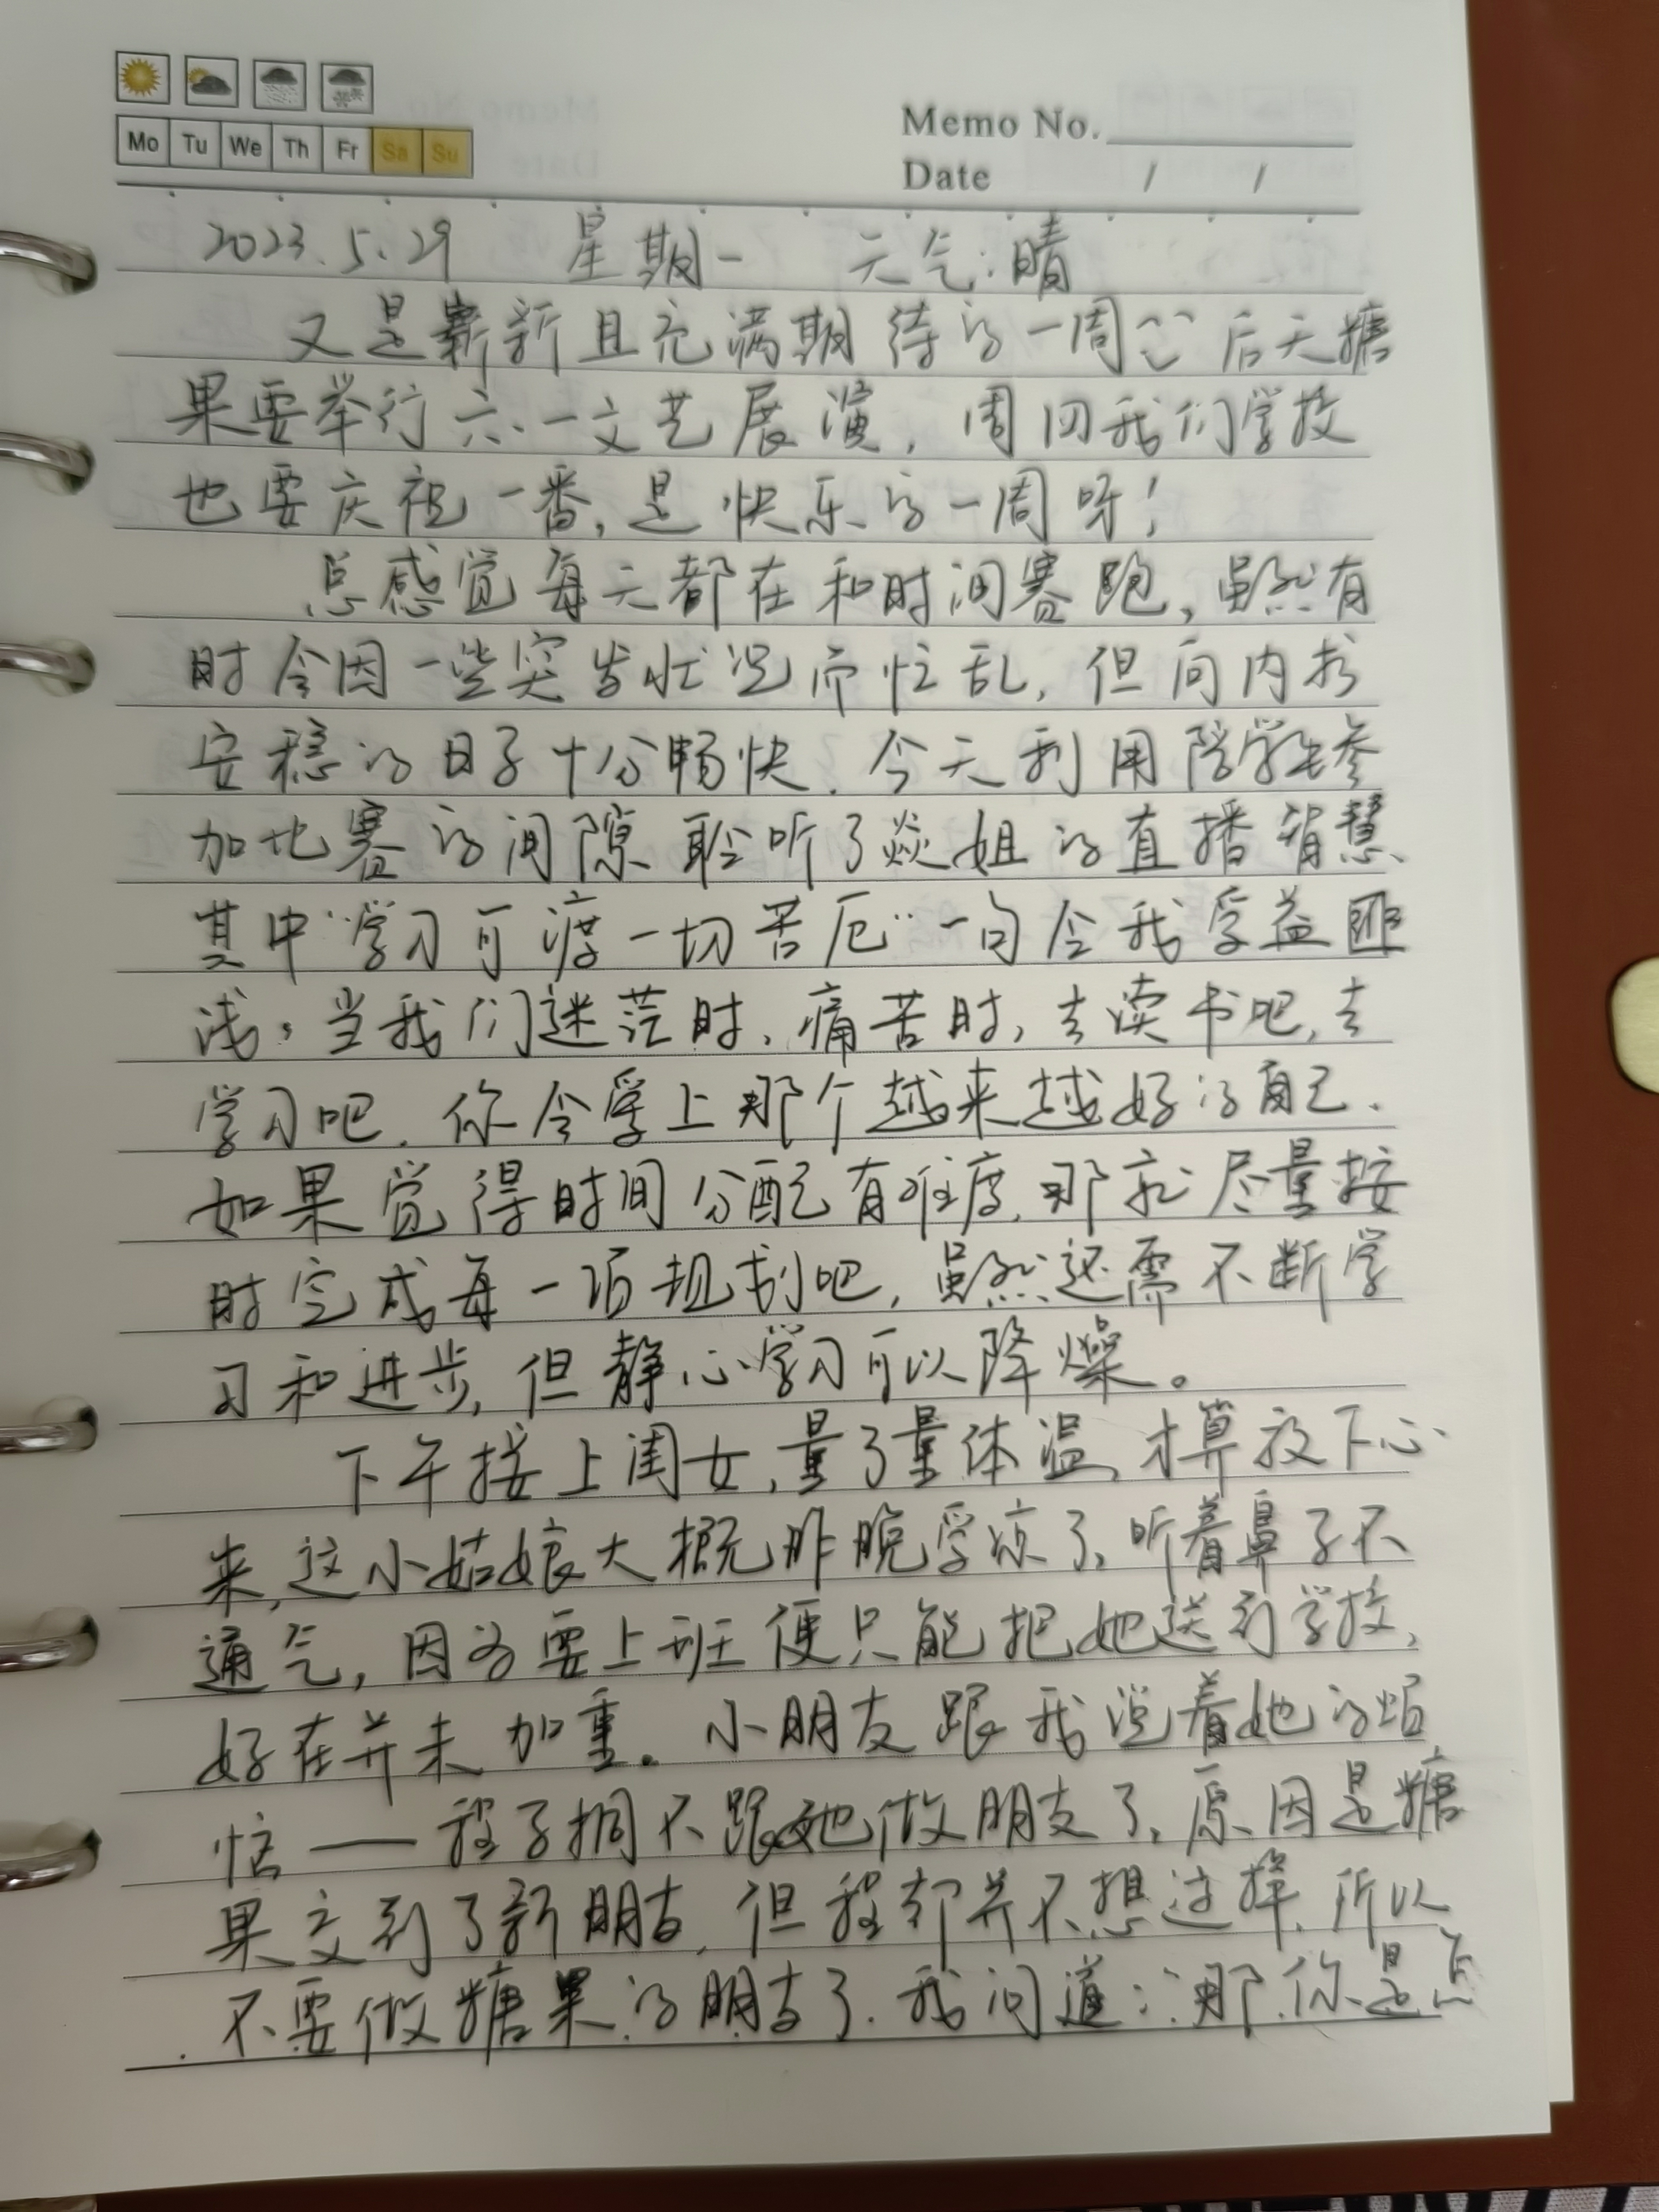 Mo Tu We Th Fr Sa Su
Memo No.
Date / /
2023.5.29 星期一 天气:晴
又是崭新且充满期待的一周~~后天糖
果要举行六一文艺展演,周四我们学校
也要庆祝一番,是快乐的一周呀!
总感觉每天都在和时间赛跑,虽然有
时会因一些突发状况而忙乱,但向内求
安稳的日子十分畅快.今天利用陪学生参
加比赛的间隙聆听了焱姐的直播智慧,
其中“学习可渡一切苦厄”一句令我受益匪
浅。当我们迷茫时、痛苦时,去读书吧,去
学习吧.你会爱上那个越来越好的自己.
如果觉得时间分配有难度,那就尽量按
时完成每一项规划吧,虽然还需不断学
习和进步,但静心学习可以降燥。
下午接上闺女,量了量体温,才算放下心
来,这小姑娘大概昨晚受凉了,听着鼻子不
通气,因为要上班便只能把她送到学校,
好在并未加重。小朋友跟我说着她的烦
恼——程子桐不跟她做朋友了,原因是糖
果交到了新朋友,但程却并不想这样,所以
不要做糖果的朋友了.我问道:“那你是怎